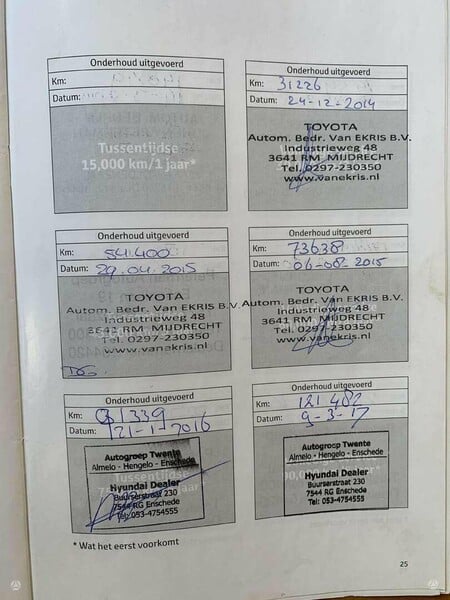 Onderhoud uitgevoerd
Km:
Datum:
Tussentijdse
15,000 km/1 jaar*
Onderhoud uitgevoerd
Km: 31226
Datum: 24-12-2014
TOYOTA
Autom. Bedr. Van EKRIS B.V.
Industrieweg 48
3641 RM MIJDRECHT
Tel. 0297-230350
www.vanekris.nl
Onderhoud uitgevoerd
Km: 54.400
Datum: 29.04.2015
TOYOTA
Autom. Bedr. Van EKRIS B.V.
Industrieweg 48
3641 RM MIJDRECHT
Tel. 0297-230350
www.vanekris.nl
Onderhoud uitgevoerd
Km: 73638
Datum: 06-08-2015
TOYOTA
Autom. Bedr. Van EKRIS B.V.
Industrieweg 48
3641 RM MIJDRECHT
Tel. 0297-230350
www.vanekris.nl
Onderhoud uitgevoerd
Km: 91339
Datum: 21-1-2016
Autogroep Twente
Almelo - Hengelo - Enschede
Hyundai Dealer
Buurserstraat 230
7544 RG Enschede
Tel: 053-4754555
Onderhoud uitgevoerd
Km: 121 482
Datum: 9-3-17
Autogroep Twente
Almelo - Hengelo - Enschede
Hyundai Dealer
Buurserstraat 230
7544 RG Enschede
Tel: 053-4754555
* Wat het eerst voorkomt
25